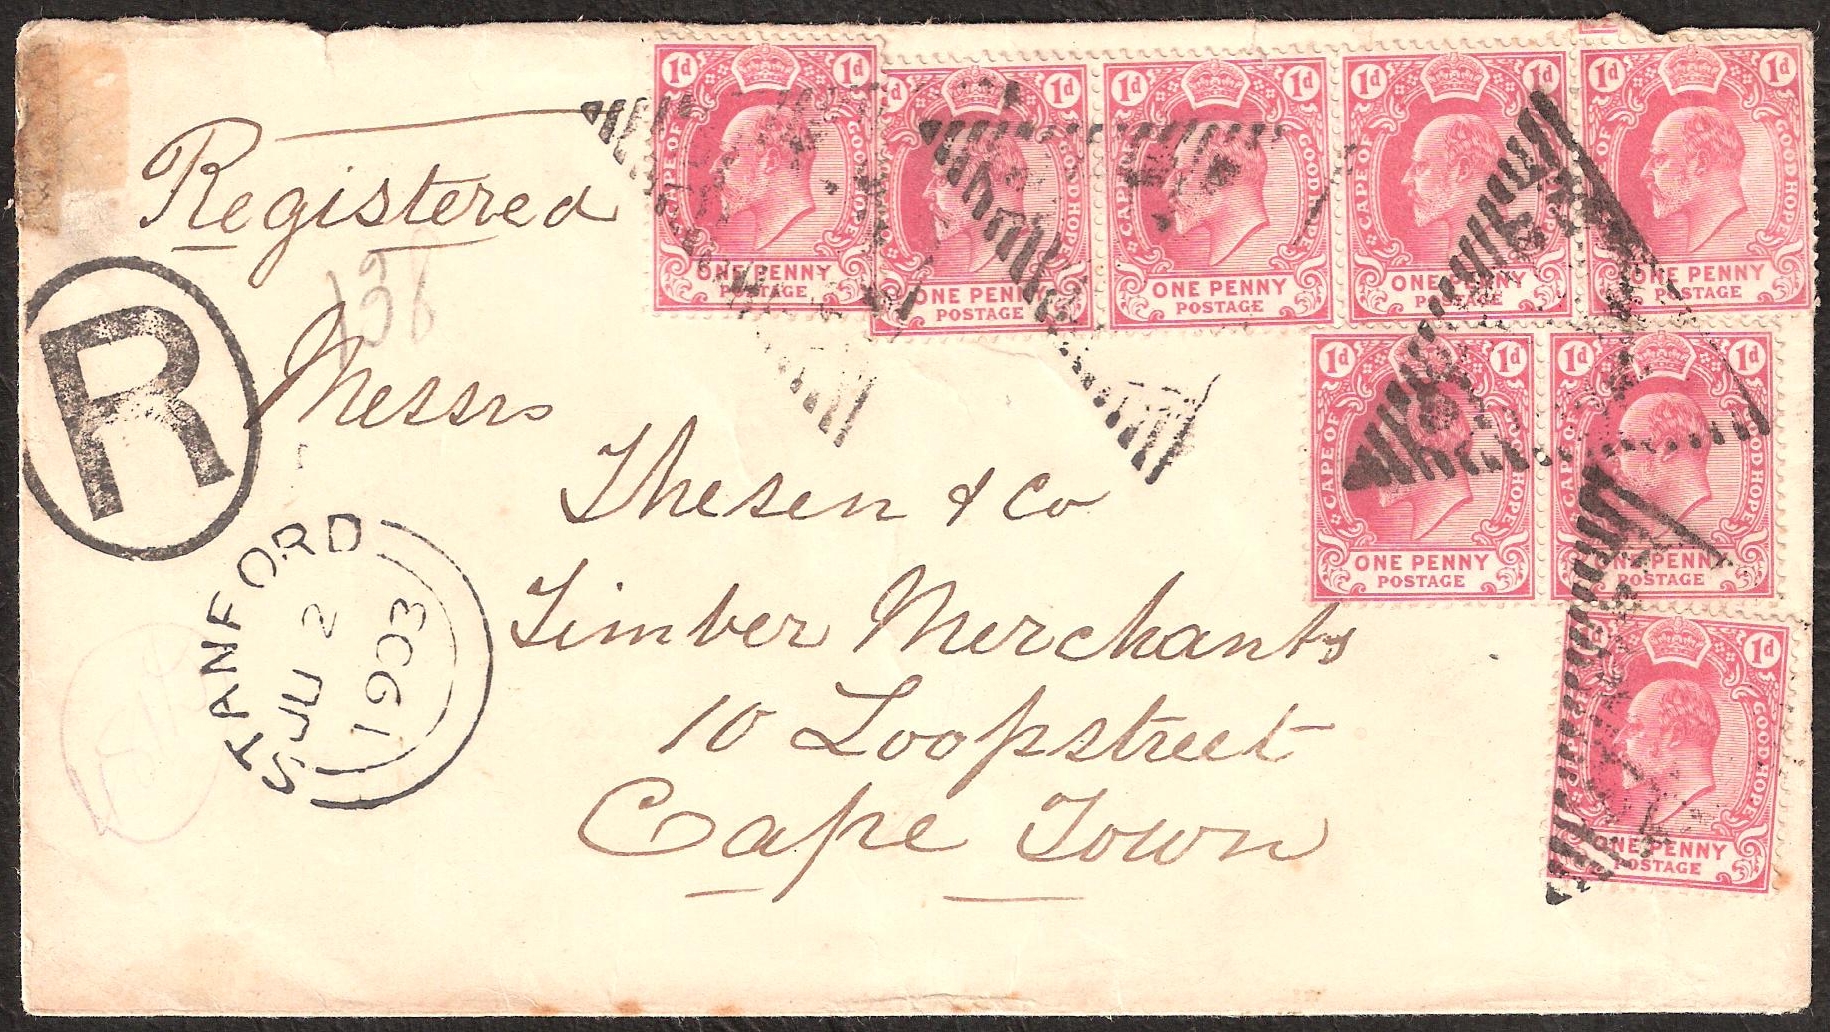 Registered
138
R
Messrs
Thesen & Co
Timber Merchants
10 Loopstreet
Cape Town
STANFORD
JU 2
1903
1d 1d
CAPE OF GOOD HOPE
ONE PENNY
POSTAGE
1d
GOOD HOPE
ONE PENNY
POSTAGE
1d 1d
CAPE OF GOOD HOPE
ONE PENNY
POSTAGE
1d 1d
CAPE OF GOOD HOPE
ONE PENNY
POSTAGE
1d 1d
OF GOOD HOPE
ONE PENNY
POSTAGE
1d 1d
CAPE OF GOOD HOPE
ONE PENNY
POSTAGE
1d 1d
CAPE OF GOOD HOPE
ONE PENNY
POSTAGE
1d
GOOD HOPE
ONE PENNY
POSTAGE